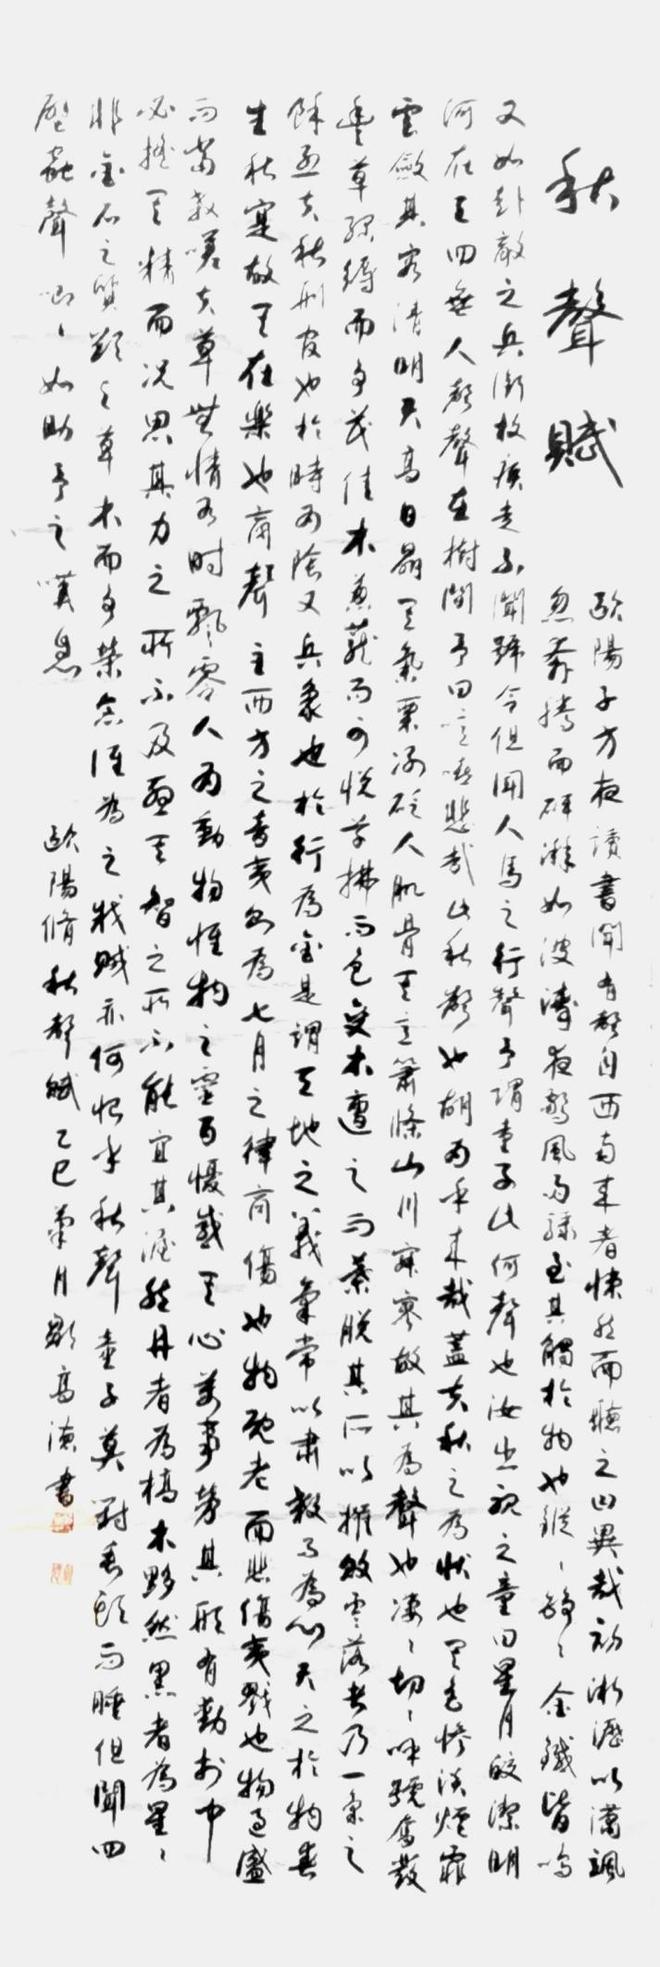 秋聲賦
歐陽子方夜讀書聞有聲自西南來者悚然而聽之曰異哉初淅瀝以瀟颯
忽奔騰而砰湃如波濤夜驚風雨驟至其觸於物也鏦、錚、金鐵皆鳴
又如赴敵之兵銜枚疾走不聞號令但聞人馬之行聲予謂童子此何聲也汝出視之童曰星月皎潔明
河在天四無人聲聲在樹間予曰噫嘻悲哉此秋聲也胡為乎來哉蓋夫秋之為狀也其色慘淡煙霏
雲斂其容清明天高日晶其氣栗冽砭人肌骨其意蕭條山川寂寥故其為聲也淒、切、呼號奮發
豐草綠縟而爭茂佳木蔥蘢而可悅草拂而色變木遭之而葉脫其所以摧敗零落者乃一氣之
餘烈夫秋刑官也於時為陰又兵象也於行為金是謂天地之義氣常以肅殺而為心天之於物春
生秋實故其在樂也商聲主西方之音夷則為七月之律商傷也物既老而悲傷夷戮也物過盛
而當殺嗟夫草無情有時飄零人為動物惟物之靈百憂感其心萬事勞其形有動於中
必搖其精而況思其力之所不及憂其智之所不能宜其渥然丹者為槁木黟然黑者為星、
非金石之質欲與草木而爭榮念誰為之戕賊亦何恨乎秋聲童子莫對垂頭而睡但聞四
壁蟲聲唧、如助予之嘆息
歐陽脩秋聲賦乙巳菊月高書